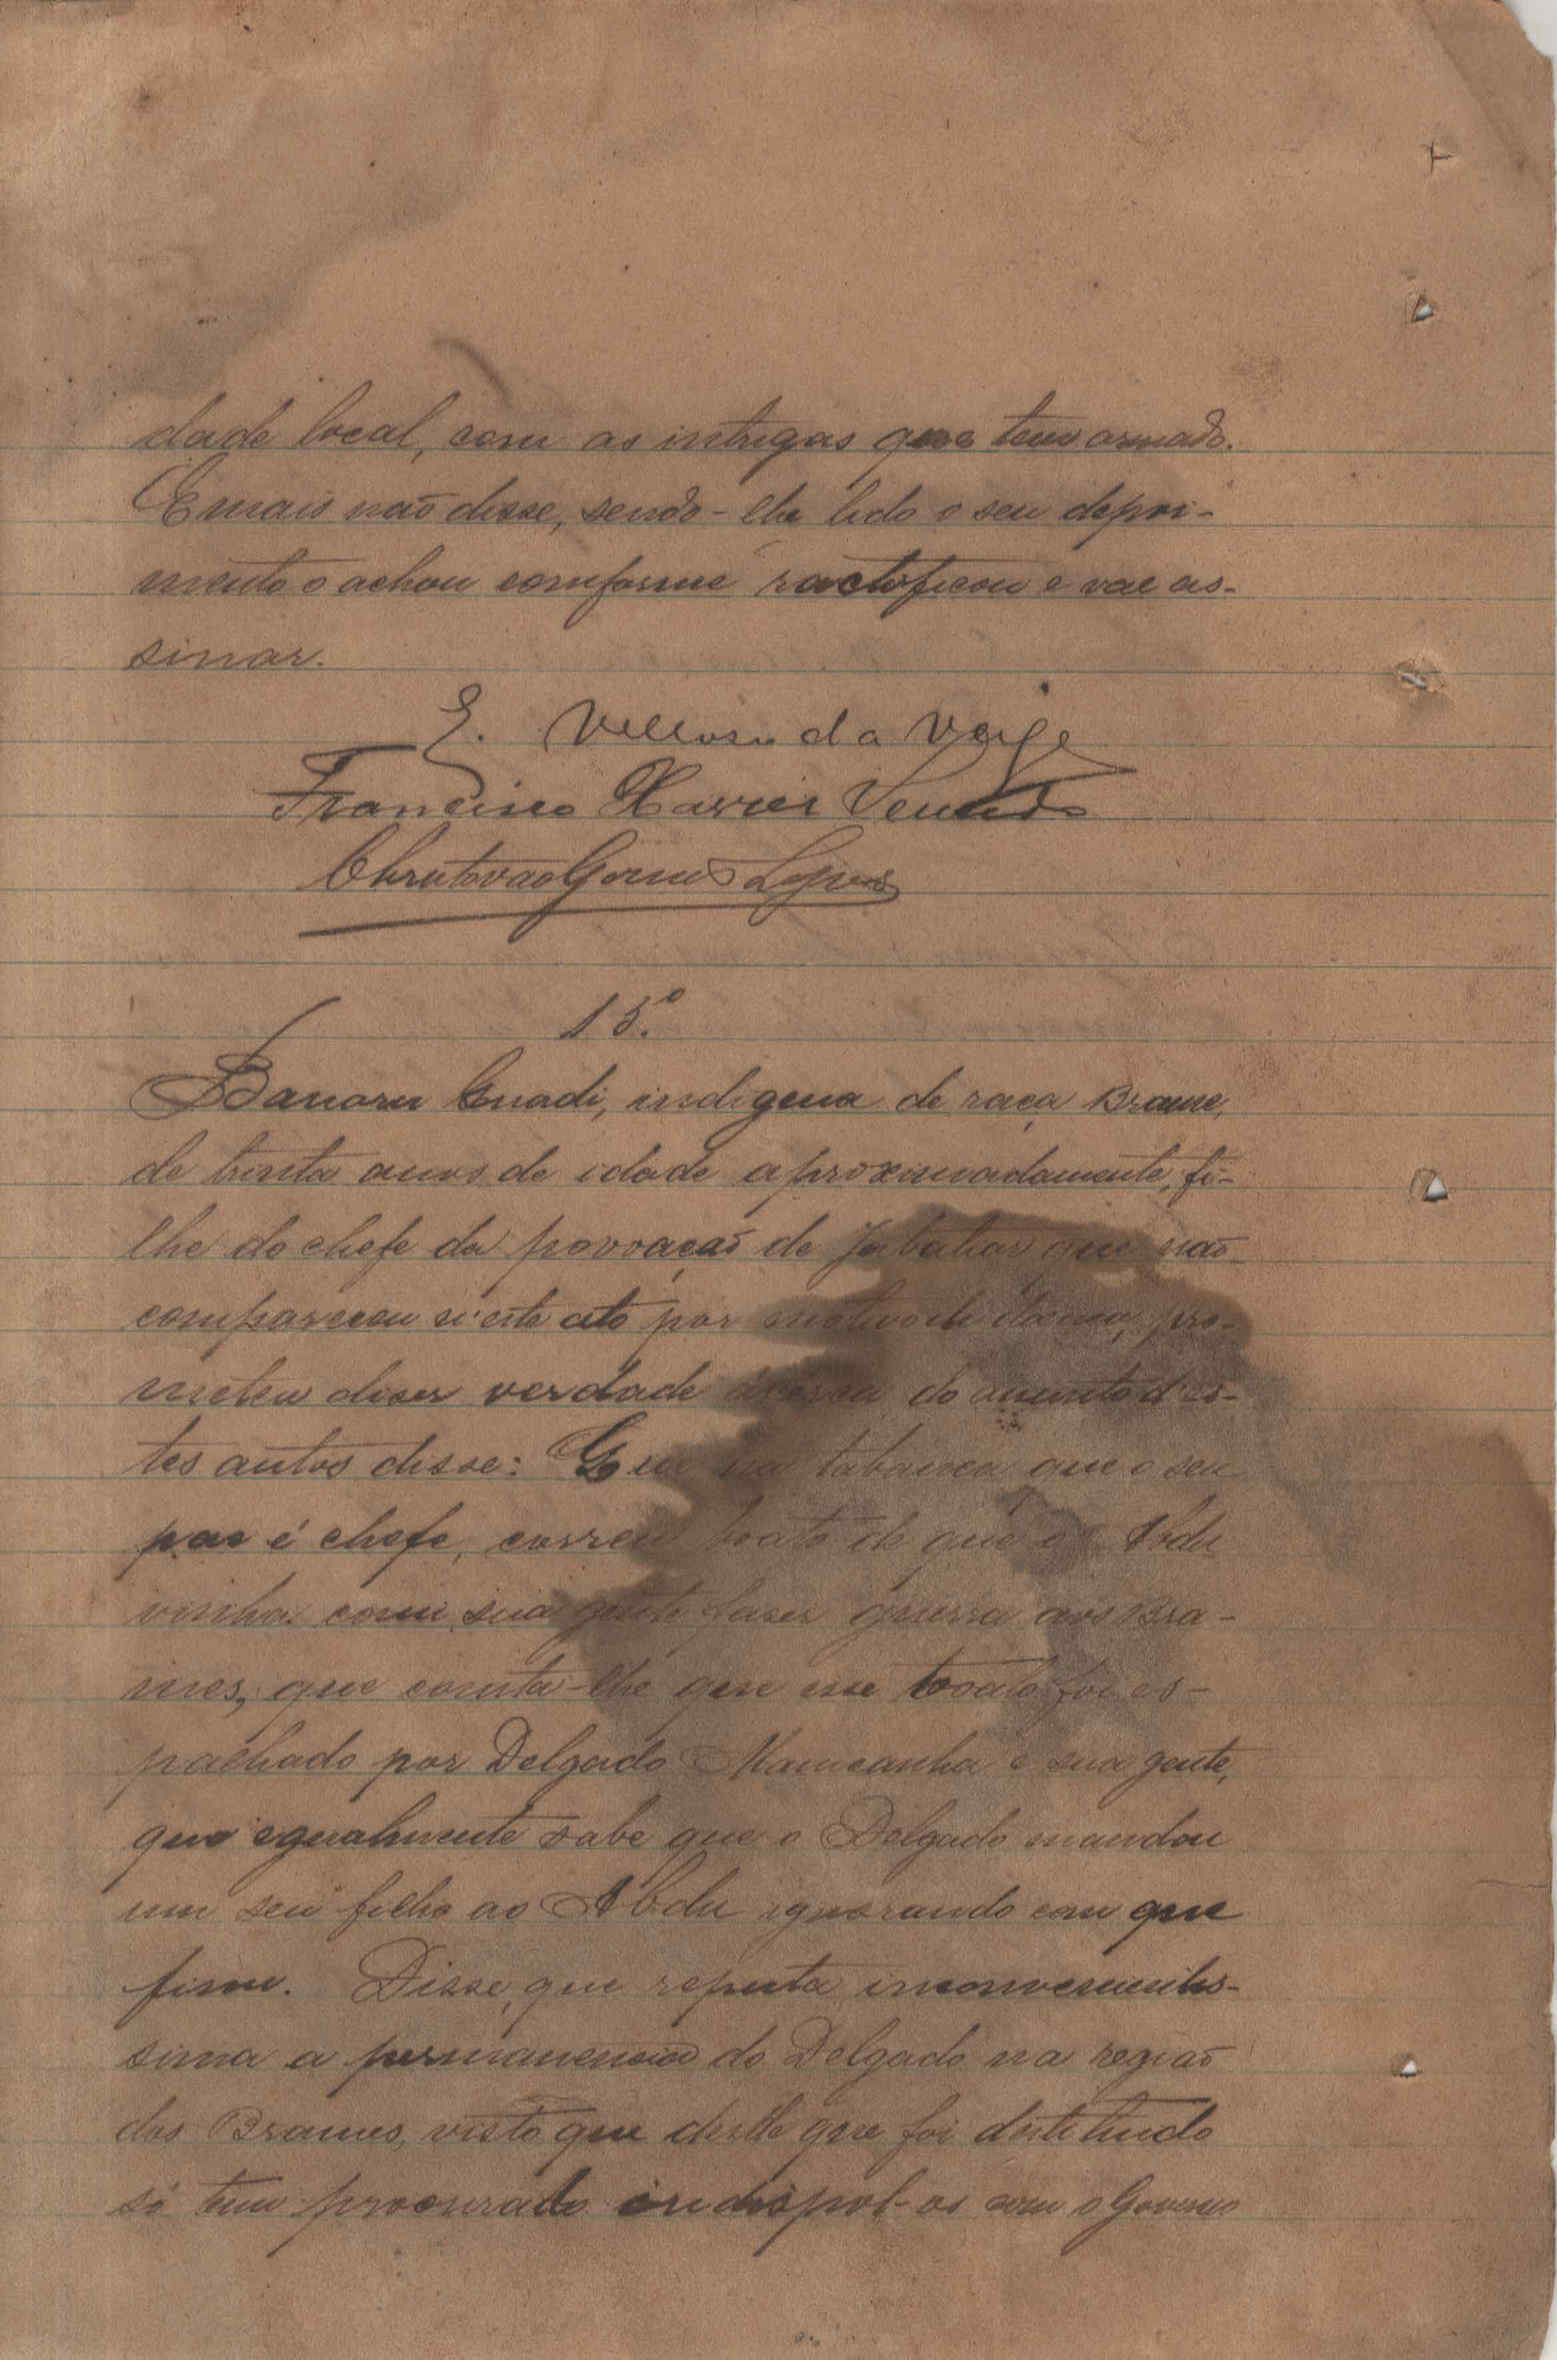 dade local, com as intrigas que tem armado.
E mais não disse, sendo-lhe lido o seu depoi-
mento o achou comforme ractoficou e vae as-
sinar.
E. Vellosu da Veiga
Francisco Xavier
Christovão Gomes Lopes
15.º
indigena de raça Brame,
de trinta anos de idade aproximadamente, fi-
lho do chefe da povoação de Jabatar que não
compareceu n'este ato por motivo de pro-
meteu diser verdade ácerca do asunto d'es-
tes autos disse: Que na tabanca que o seu
pae é chefe, correu boato de que o Abdu
vinha com sua gente faser guerra aos Bra-
mes, que consta-lhe que esse boato foi es-
palhado por Delgado Mamcanha e sua gente,
que egualmente sabe que o Delgado mandou
um seu filho ao Abdu ignorando com que
fim. Disse, que reputa inconvenientis-
sima a permanencia do Delgado na região
dos Brames, visto que desde que foi destituido
só tem procurado indispol-os com o Governo